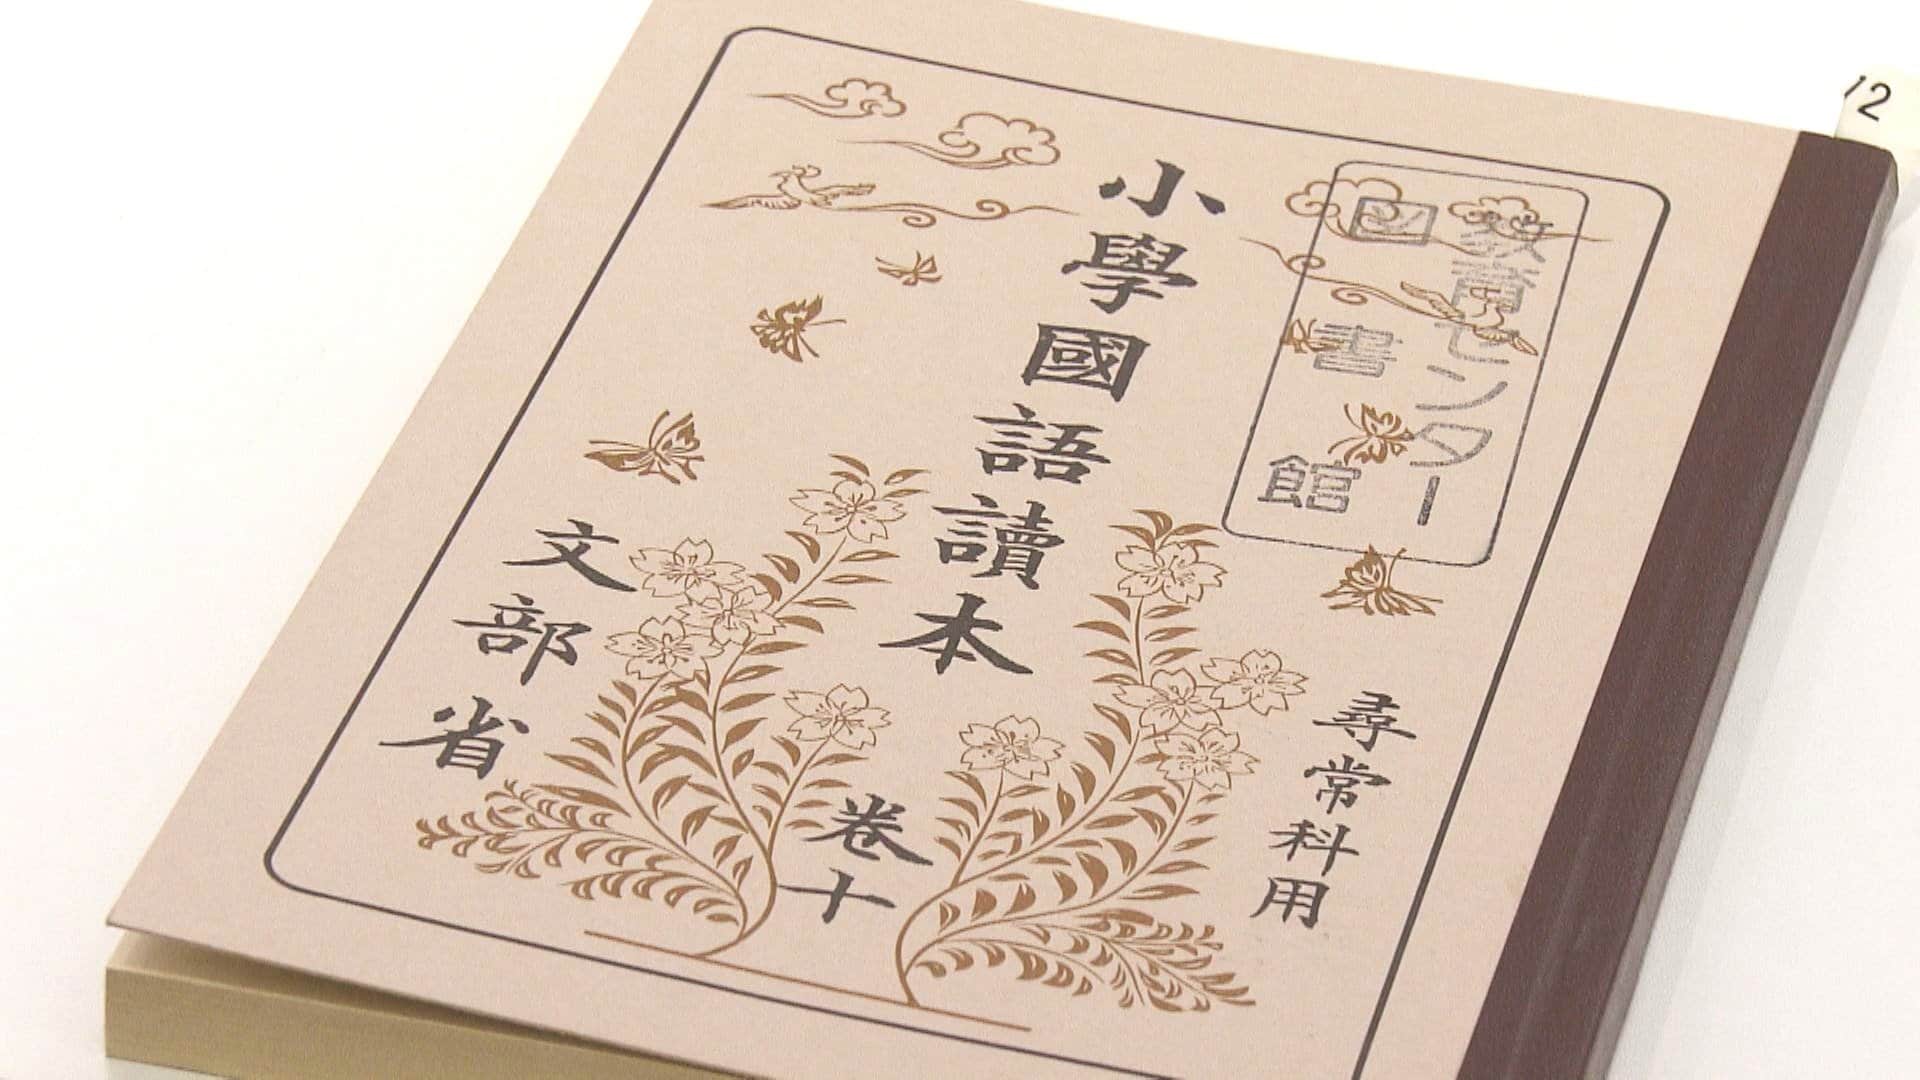 尋常科用
小學國語讀本
卷十
文部省
教育センター
図書館
12